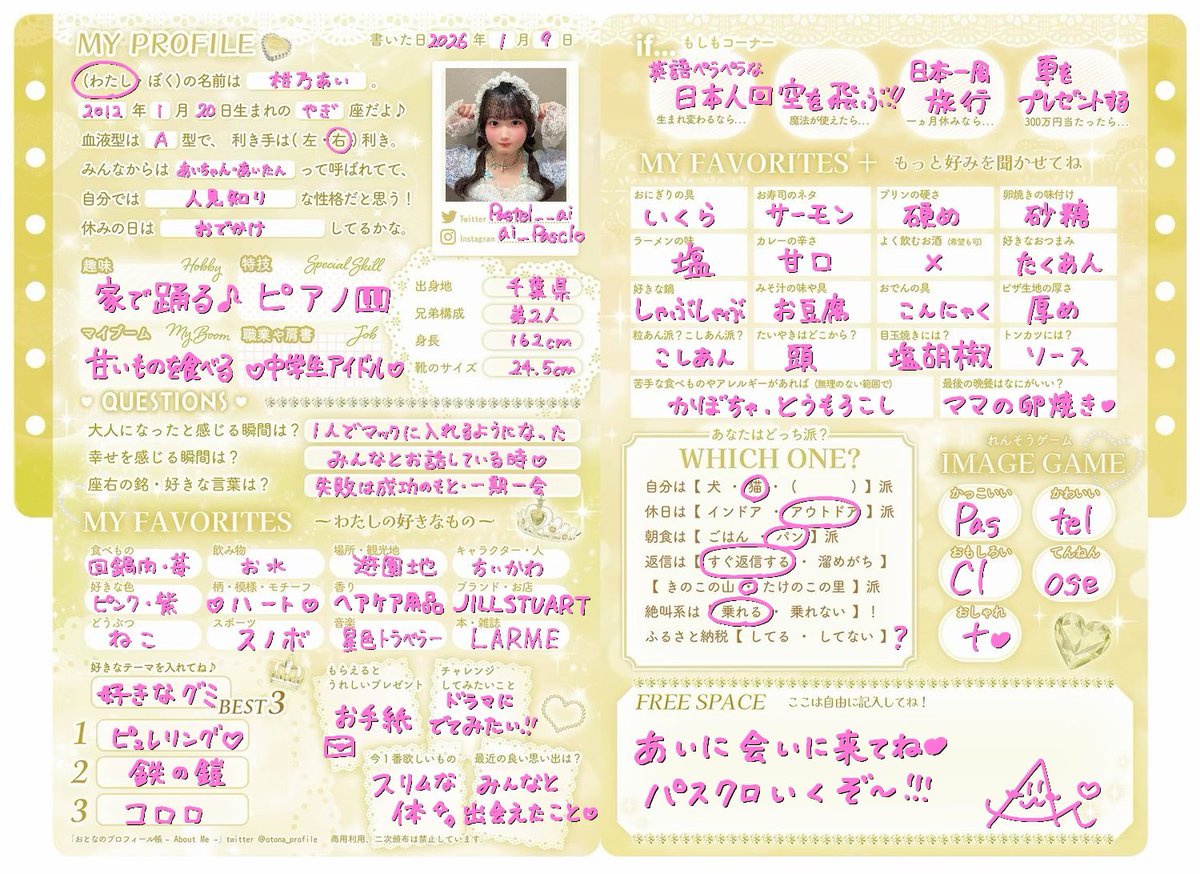 MY PROFILE
書いた日 2026 年 1 月 9 日
(わたし・ぼく)の名前は 柑乃あい 。
2012 年 1 月 20 日生まれの やぎ 座だよ♪
血液型は A 型で、 利き手は(左・右)利き。
みんなからは あいちゃん・あいたん って呼ばれてて、
自分では 人見知り な性格だと思う!
休みの日は おでかけ してるかな。
Twitter Pastel__ai
Instagram ai_Pasclo
趣味 Hobby
家で踊る♪
特技 Special Skill
ピアノ
マイブーム My Boom
甘いものを食べる
職業や肩書 Job
♡中学生アイドル♡
出身地 千葉県
兄弟構成 弟2人
身長 162cm
靴のサイズ 24.5cm
♥ QUESTIONS ♥
大人になったと感じる瞬間は? 1人でマックに入れるようになった
幸せを感じる瞬間は? みんなとお話している時♡
座右の銘・好きな言葉は? 失敗は成功のもと・一期一会
MY FAVORITES ~わたしの好きなもの~
食べもの 回鍋肉・苺
飲み物 お水
場所・観光地 遊園地
キャラクター・人 ちいかわ
好きな色 ピンク・紫
柄・模様・モチーフ ♡ハート♡
香り ヘアケア用品
ブランド・お店 JILLSTUART
どうぶつ ねこ
スポーツ スノボ
音楽 星色トラベラー
本・雑誌 LARME
好きなテーマを入れてね♪
好きなグミ BEST3
1 ピュレリング♡
2 鉄の鎧
3 コロロ
もらえるとうれしいプレゼント
お手紙
チャレンジしてみたいこと
ドラマにでてみたい!!
今1番欲しいもの
スリムな体
最近の良い思い出は?
みんなと出会えたこと♡
「おとなのプロフィール帳 - About Me -」twitter @otona_profile 商用利用、二次頒布は禁止しています。
if... もしもコーナー
英語ぺらぺらな
日本人
生まれ変わるなら...
空を飛ぶ!!
魔法が使えたら...
日本一周
旅行
一ヵ月休みなら...
車を
プレゼントする
300万円当たったら...
MY FAVORITES + もっと好みを聞かせてね
おにぎりの具 いくら
お寿司のネタ サーモン
プリンの硬さ 硬め
卵焼きの味付け 砂糖
ラーメンの味 塩
カレーの辛さ 甘口
よく飲むお酒 (希望も可) ×
好きなおつまみ たくあん
好きな鍋 しゃぶしゃぶ
みそ汁の味や具 お豆腐
おでんの具 こんにゃく
ピザ生地の厚さ 厚め
粒あん派?こしあん派? こしあん
たいやきはどこから? 頭
目玉焼きには? 塩胡椒
トンカツには? ソース
苦手な食べものやアレルギーがあれば (無理のない範囲で)
かぼちゃ、とうもろこし
最後の晩餐はなにがいい?
ママの卵焼き♥
あなたはどっち派?
WHICH ONE?
自分は【 犬 ・ 猫 ・ ( ) 】派
休日は【 インドア ・ アウトドア 】派
朝食は【 ごはん ・ パン 】派
返信は【 すぐ返信する ・ 溜めがち 】
【 きのこの山 ・ たけのこの里 】派
絶叫系は【 乗れる ・ 乗れない 】!
ふるさと納税【 してる ・ してない 】?
れんそうゲーム
IMAGE GAME
かっこいい Pas
かわいい tel
おもしろい Cl
てんねん ose
おしゃれ t♥
FREE SPACE ここは自由に記入してね!
あいに会いに来てね♥
パスクロいくぞ〜!!!